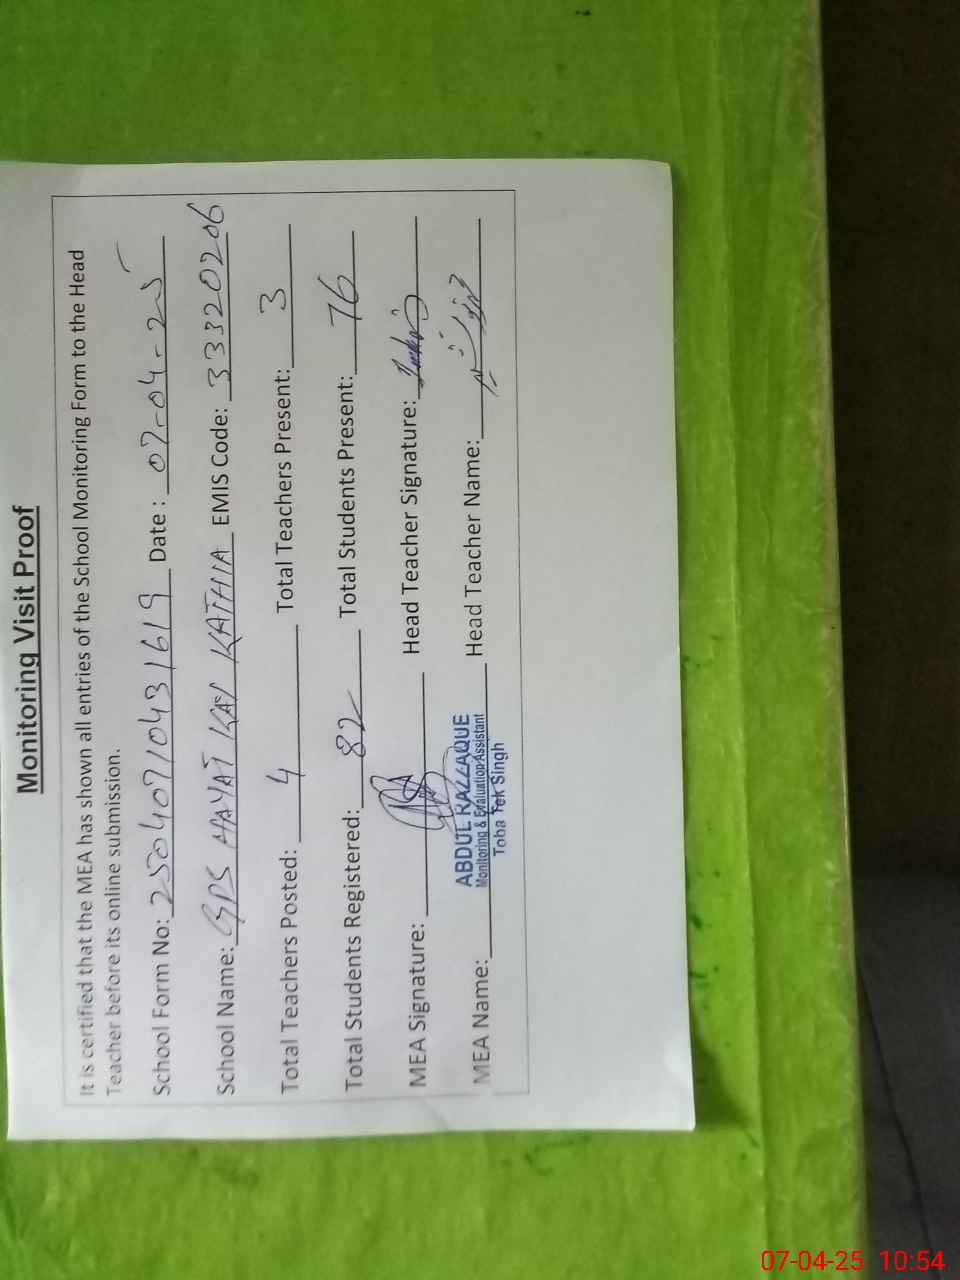 Monitoring Visit Proof
It is certified that the MEA has shown all entries of the School Monitoring Form to the Head
Teacher before its online submission.
School Form No: 25040710431619 Date : 07-04-25
School Name: GPS HAYAT KAY KATHIA EMIS Code: 33320206
Total Teachers Posted: 4 Total Teachers Present: 3
Total Students Registered: 82 Total Students Present: 76
MEA Signature: Head Teacher Signature:
MEA Name: ABDUL RAZZAQUE Head Teacher Name:
Monitoring & Evaluation Assistant
Toba Tek Singh
07-04-25 10:54